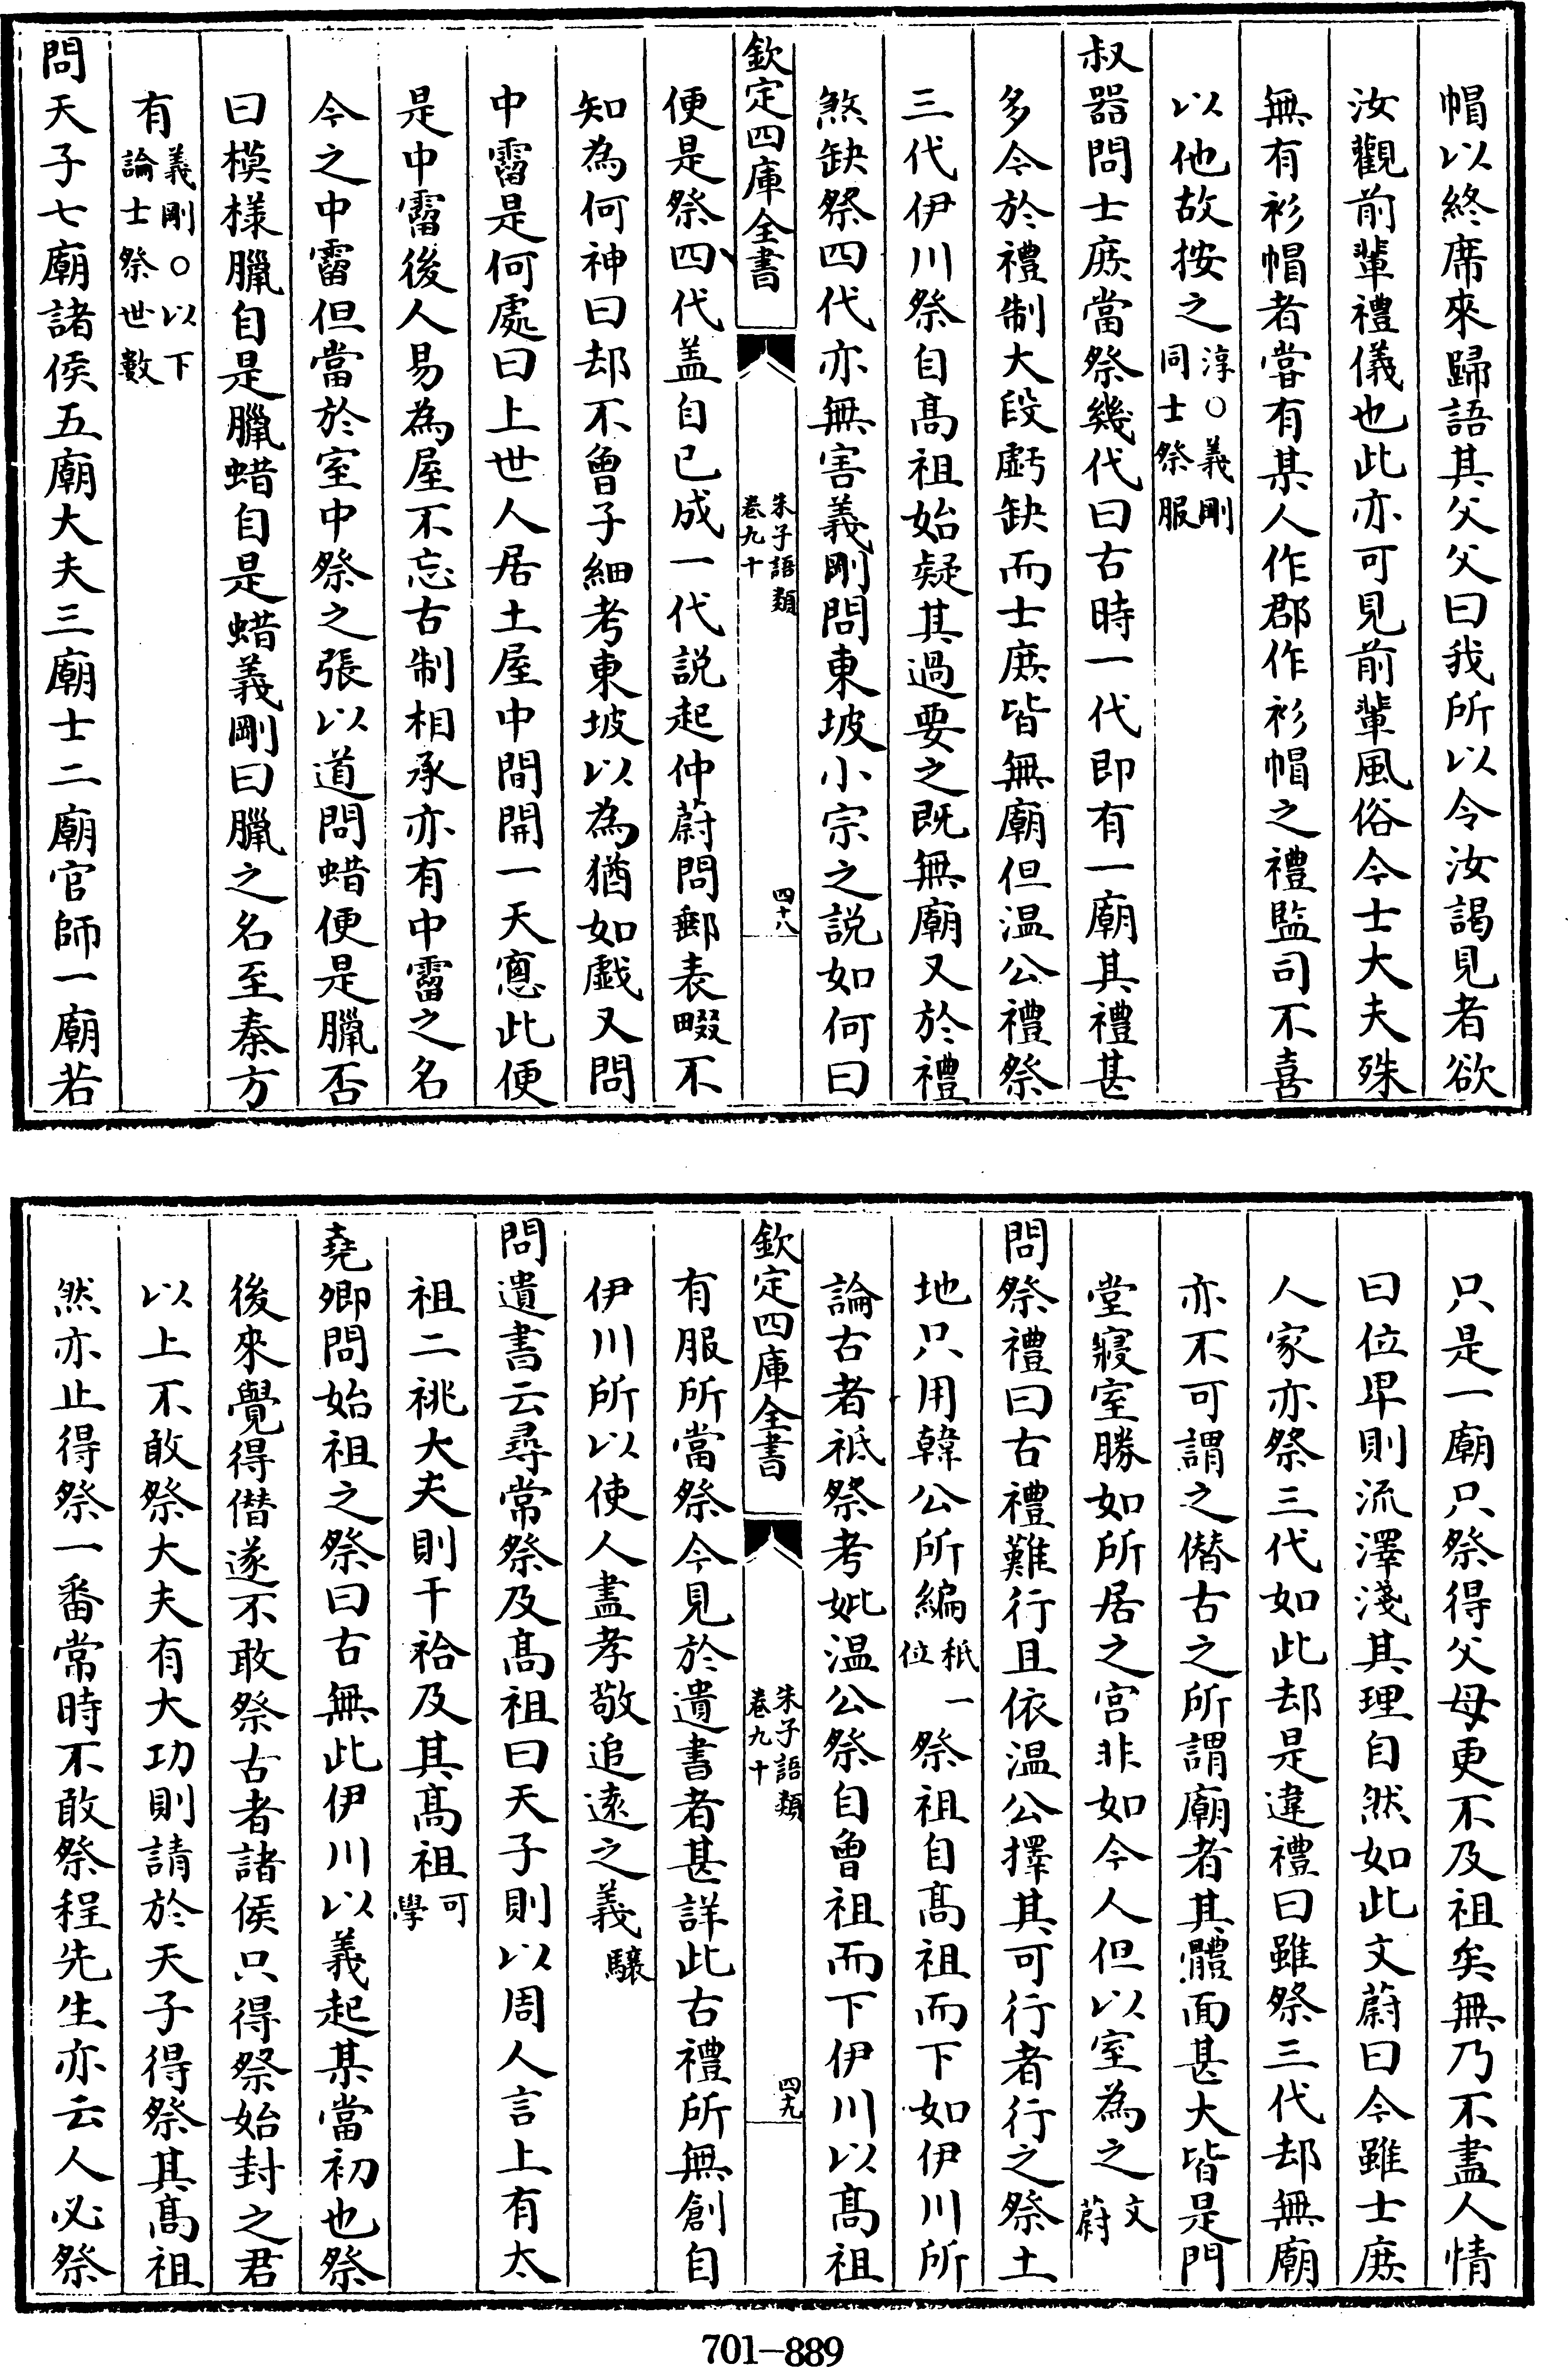 帽以終席來歸語其父父曰我所以令汝謁見者欲
汝觀前輩禮儀也此亦可見前輩風俗今士大夫殊
無有衫帽者嘗有某人作郡作衫帽之禮監司不喜
以他故按之淳○義剛同士祭服
叔器問士庶當祭幾代曰古時一代即有一廟其禮甚
多今於禮制大段虧缺而士庶皆無廟但温公禮祭
三代伊川祭自髙祖始疑其過要之既無廟又於禮
煞缺祭四代亦無害義剛問東坡小宗之説如何曰
欽定四庫全書
朱子語類
卷九十
四十八
便是祭四代盖自已成一代説起仲蔚問郵表畷不
知為何神曰却不曾子細考東坡以為猶如戲又問
中霤是何處曰上世人居土屋中間開一天窻此便
是中霤後人易為屋不忘古制相承亦有中霤之名
今之中霤但當於室中祭之張以道問蜡便是臘否
曰模様臘自是臘蜡自是蜡義剛曰臘之名至秦方
有義剛○以下論士祭世數
問天子七廟諸侯五廟大夫三廟士二廟官師一廟若
只是一廟只祭得父母更不及祖矣無乃不盡人情
曰位卑則流澤淺其理自然如此文蔚曰今雖士庶
人家亦祭三代如此却是違禮曰雖祭三代却無廟
亦不可謂之僣古之所謂廟者其體面甚大皆是門
堂寢室勝如所居之宫非如今人但以室為之文蔚
問祭禮曰古禮難行且依温公擇其可行者行之祭土
地只用韓公所編秪一位祭祖自髙祖而下如伊川所
論古者祗祭考妣温公祭自曾祖而下伊川以髙祖
欽定四庫全書
朱子語類
卷九十
四十九
有服所當祭今見於遺書者甚詳此古禮所無創自
伊川所以使人盡孝敬追逺之義驤
問遺書云尋常祭及髙祖曰天子則以周人言上有太
祖二祧大夫則干祫及其髙祖可學
堯卿問始祖之祭曰古無此伊川以義起某當初也祭
後來覺得僣遂不敢祭古者諸侯只得祭始封之君
以上不敢祭大夫有大功則請於天子得祭其髙祖
然亦止得祭一番常時不敢祭程先生亦云人必祭
701—889